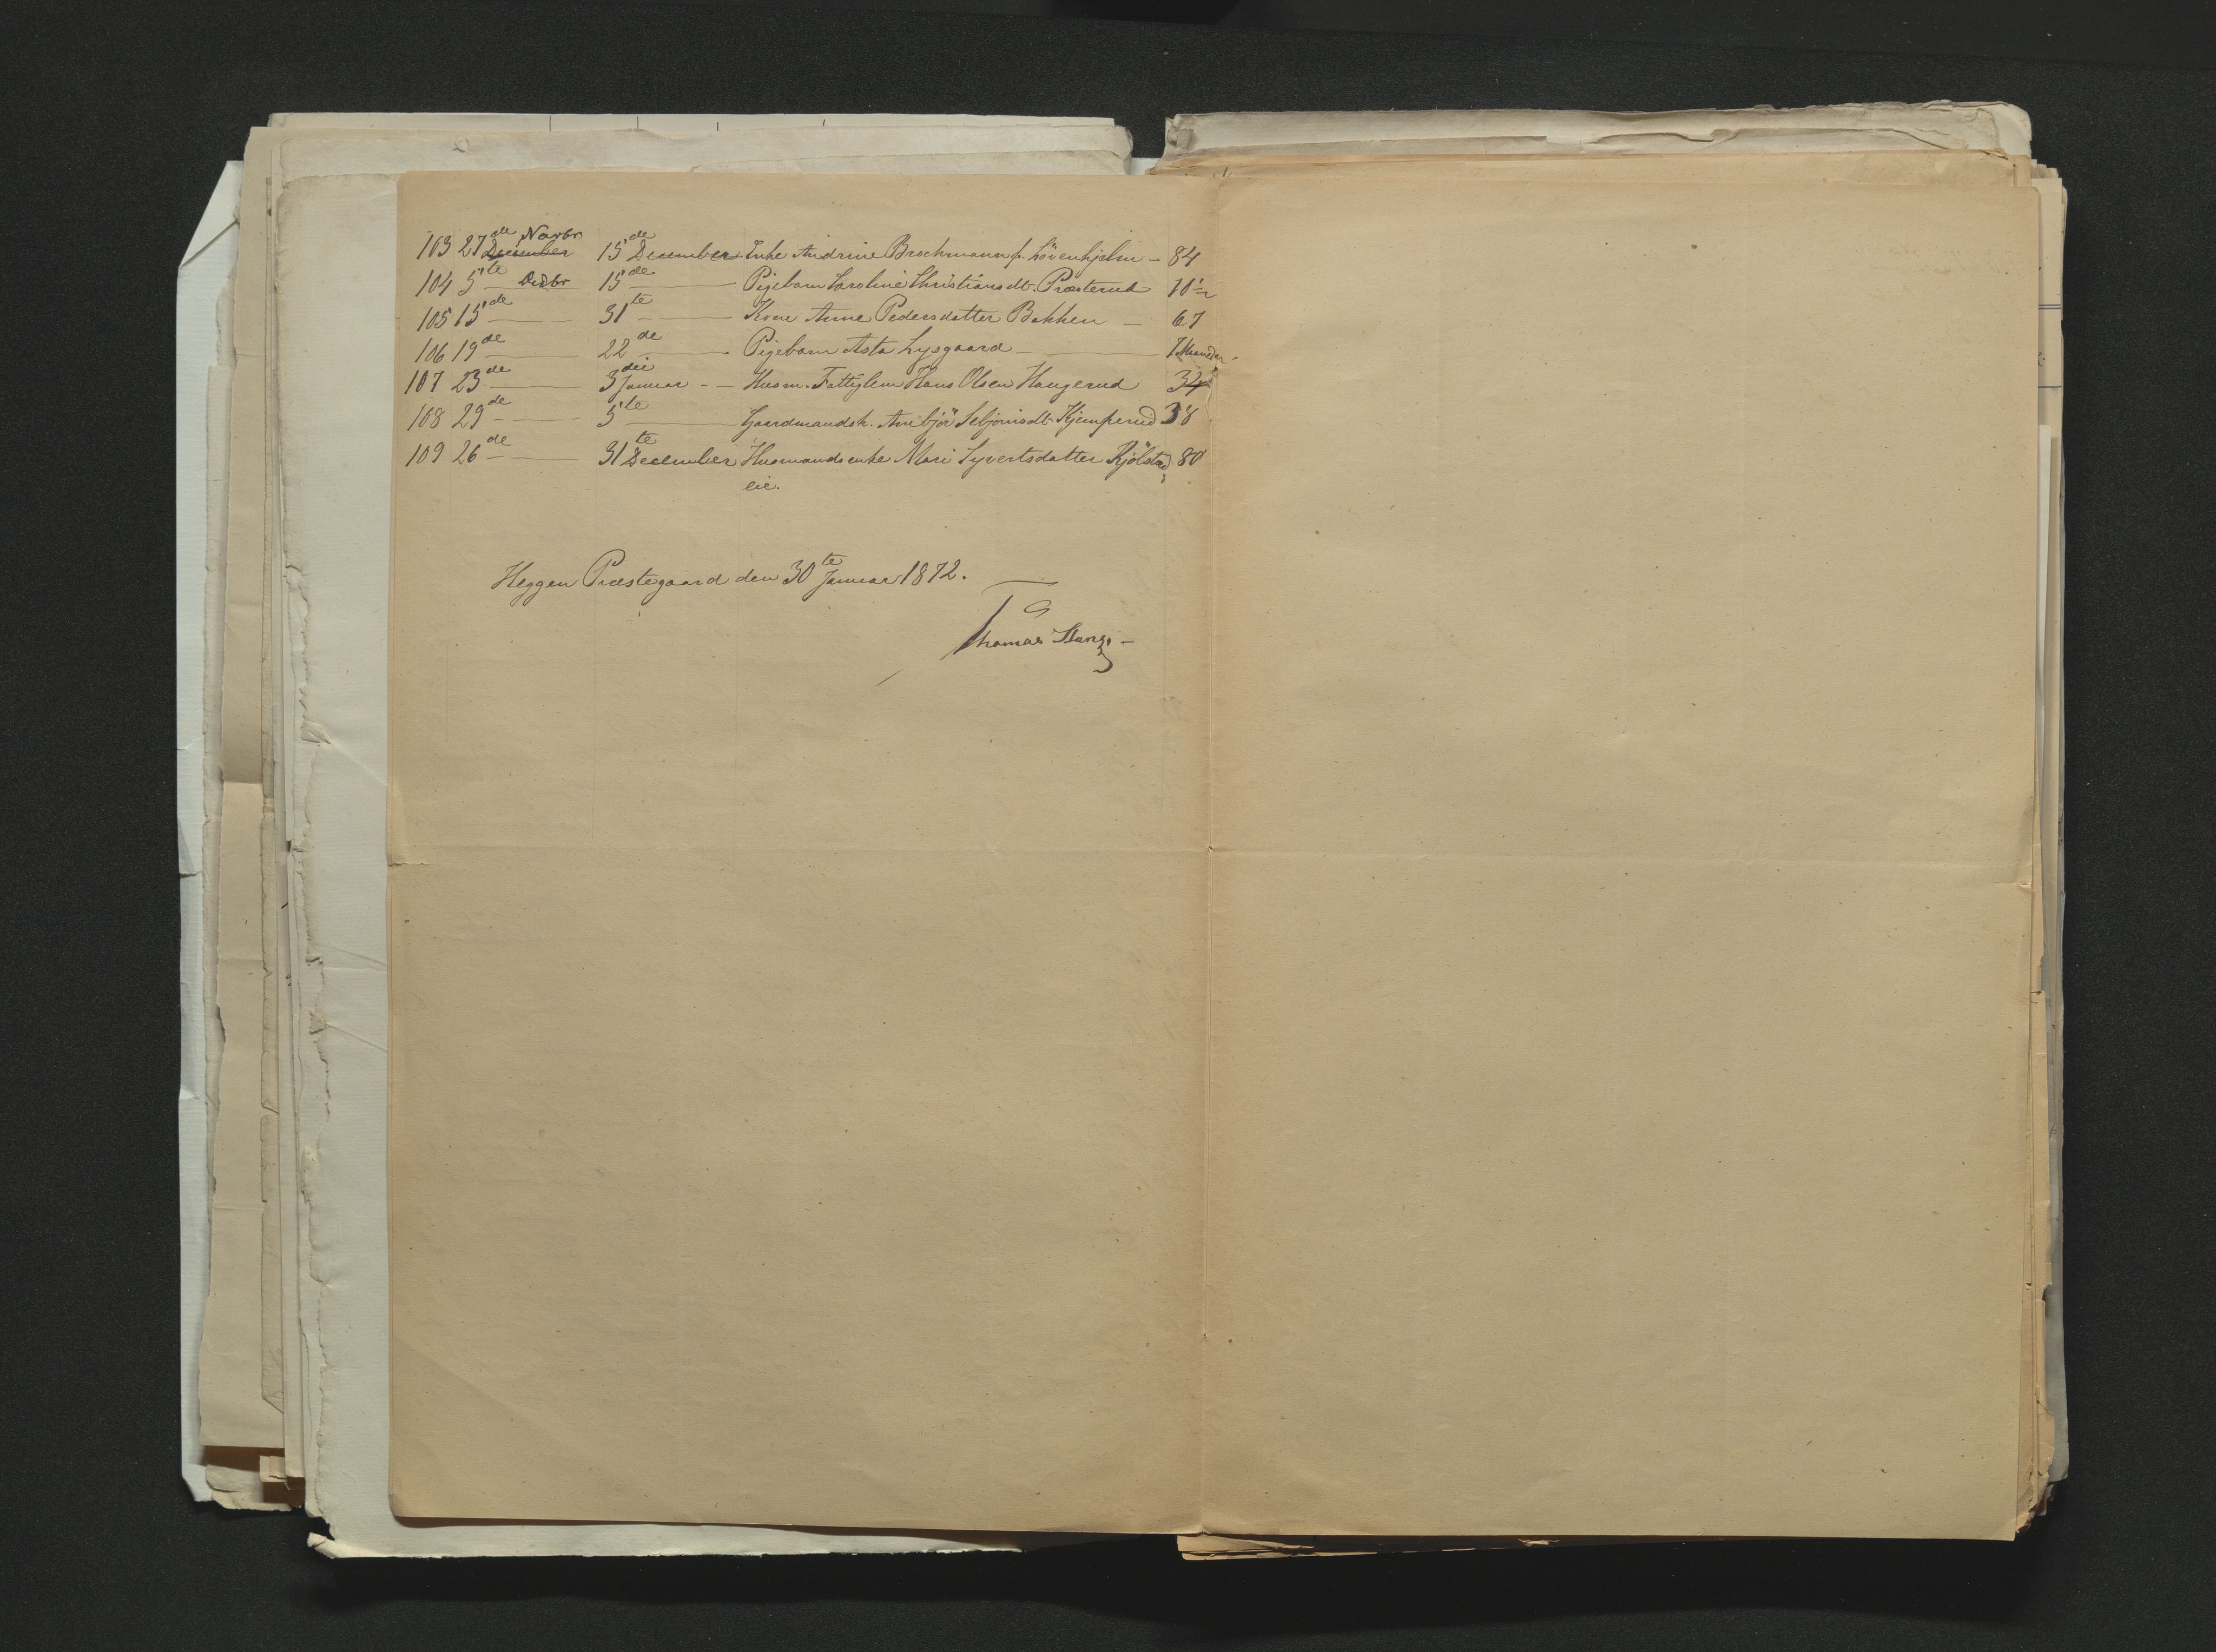 103 27de Novbr December 15de December Enke Andrine Brochmann f. Lövenhjelm – 84
104 5te — Decbr 15de — Pigebarn Caroline Christiansdtt. Præsterud 10½
105 15de — 31te — Kone Anne Pedersdatter Bakken — 67
106 19de — 22de — Pigebarn Asta Lysgaard — 7 Maaneder
107 23de — 3die Januar — Huusm. Fattiglem Hans Olsen Haugerud 34
108 29de — 5te — Gaardmandsk. Anbjör Sebjörnsdt. Kjemperud 38
109 26de — 31te December Huusmandsenke Mari Syvertsdatter Kjölstad 80
eie.
Heggen Præstegaard den 30te Januar 1872.
Thomas Stang